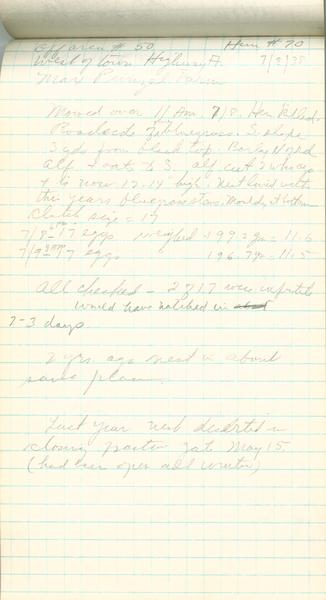 # 50 Hen # 70
West of town Highway A. 7/8/38
Farm
Mowed over 11 Am. 7/8. Hen killed.
Roadside bluegrass. S slope
3 yds from black top. Barley N of rd
alf & oats to S. alf cut 2 wks ago
now 12-14" high. Nest lined with
this years bluegrass stems.
Clutch size = 17
7/8 17 eggs weighed = 199.2 gr = 11.6
7/9 17 eggs 196.7 gr = 11.5
All checked - 2 of 17 were infertile
would have hatched in
2-3 days.
2 yrs. ago nest in about
same place.
Last year nest deserted in
closing pasture gate May 15.
(had been open all winter)